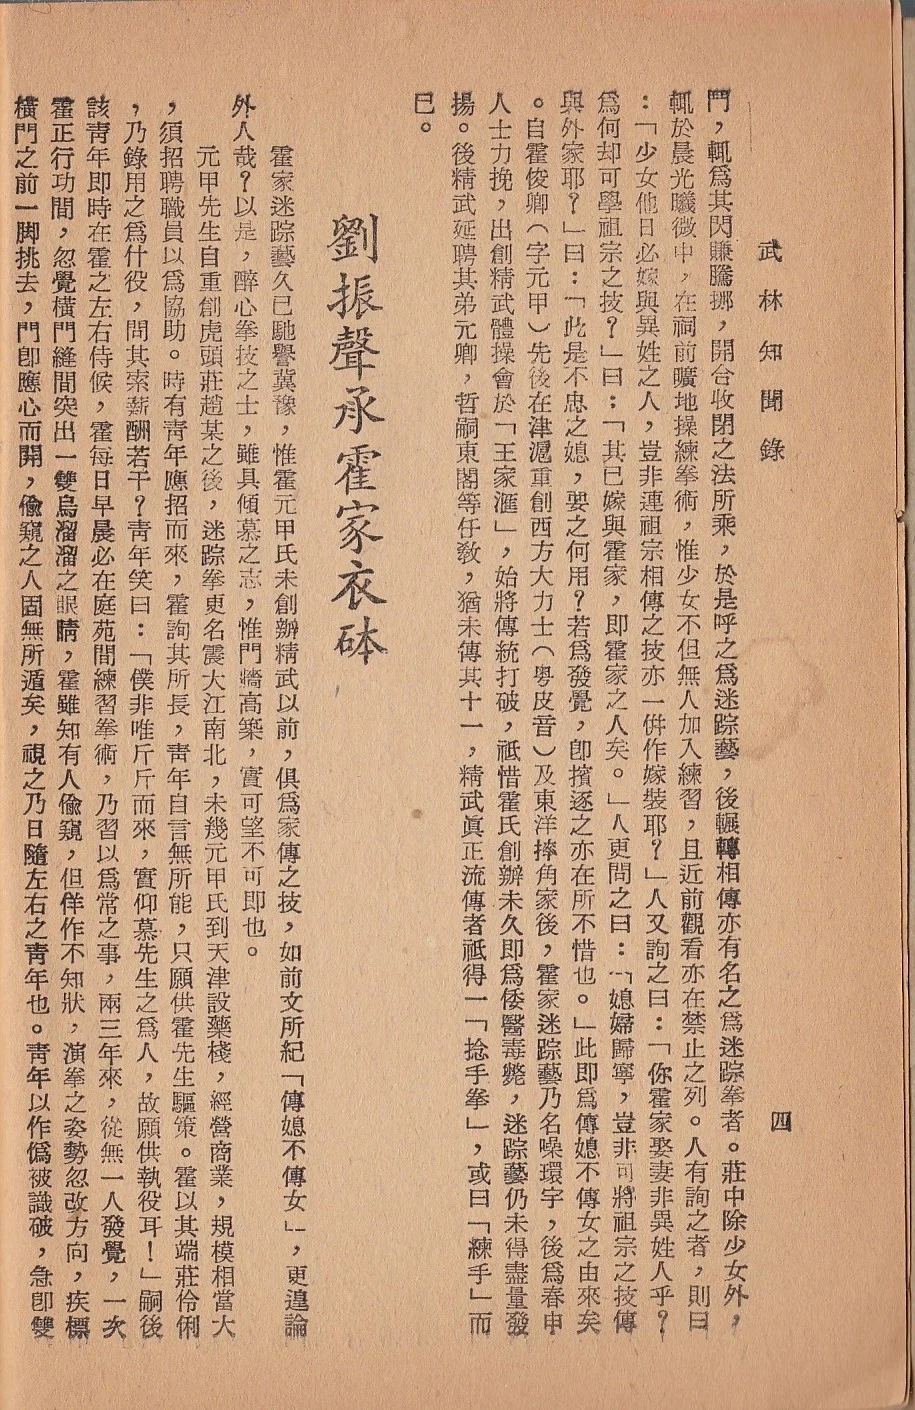 武林知聞錄
四
鬥，輒爲其閃賺騰挪，開合收閉之法所乘，於是呼之爲迷踪藝，後輾轉相傳亦有名之爲迷踪拳者。莊中除少女外，
輒於晨光曦微中，在祠前曠地操練拳術，惟少女不但無人加入練習，且近前觀看亦在禁止之列。人有詢之者，則曰
：「少女他日必嫁與異姓之人，豈非連祖宗相傳之技亦一倂作嫁裝耶？」人又詢之曰：「你霍家娶妻非異姓人乎？
爲何却可學祖宗之技？」曰：「其已嫁與霍家，即霍家之人矣。」人更問之曰：「媳婦歸寧，豈非可將祖宗之技傳
與外家耶？」曰：「此是不忠之媳，要之何用？若爲發覺，卽擯逐之亦在所不惜也。」此即爲傳媳不傳女之由來矣
。自霍俊卿（字元甲）先後在津滬重創西方大力士（粤皮音）及東洋摔角家後，霍家迷踪藝乃名噪環宇，後爲春申
人士力挽，出創精武體操會於「王家滙」，始將傳統打破，祗惜霍氏創辦未久即爲倭醫毒斃，迷踪藝仍未得盡量發
揚。後精武延聘其弟元卿，哲嗣東閣等任敎，猶未傳其十一，精武眞正流傳者祗得一「捻手拳」，或曰「練手」而
已。
劉振聲承霍家衣砵
霍家迷踪藝久已馳譽冀豫，惟霍元甲氏未創辦精武以前，俱爲家傳之技，如前文所紀「傳媳不傳女」，更遑論
外人哉？以是，醉心拳技之士，雖具傾慕之志，惟門牆高築，實可望不可即也。
元甲先生自重創虎頭莊趙某之後，迷踪拳更名震大江南北，未幾元甲氏到天津設藥棧，經營商業，規模相當大
，須招聘職員以爲協助。時有靑年應招而來，霍詢其所長，靑年自言無所能，只願供霍先生驅策。霍以其端莊伶俐
，乃錄用之爲什役，問其索薪酬若干？靑年笑曰：「僕非唯斤斤而來，實仰慕先生之爲人，故願供執役耳！」嗣後
該靑年即時在霍之左右侍候，霍每日早晨必在庭苑間練習拳術，乃習以爲常之事，兩三年來，從無一人發覺，一次
霍正行功間，忽覺橫門縫間突出一雙烏溜溜之眼睛，霍雖知有人偸窺，但佯作不知狀，演拳之姿勢忽改方向，疾標
橫門之前一脚挑去，門卽應心而開，偸窺之人固無所遁矣，視之乃日隨左右之靑年也。靑年以作僞被識破，急卽雙